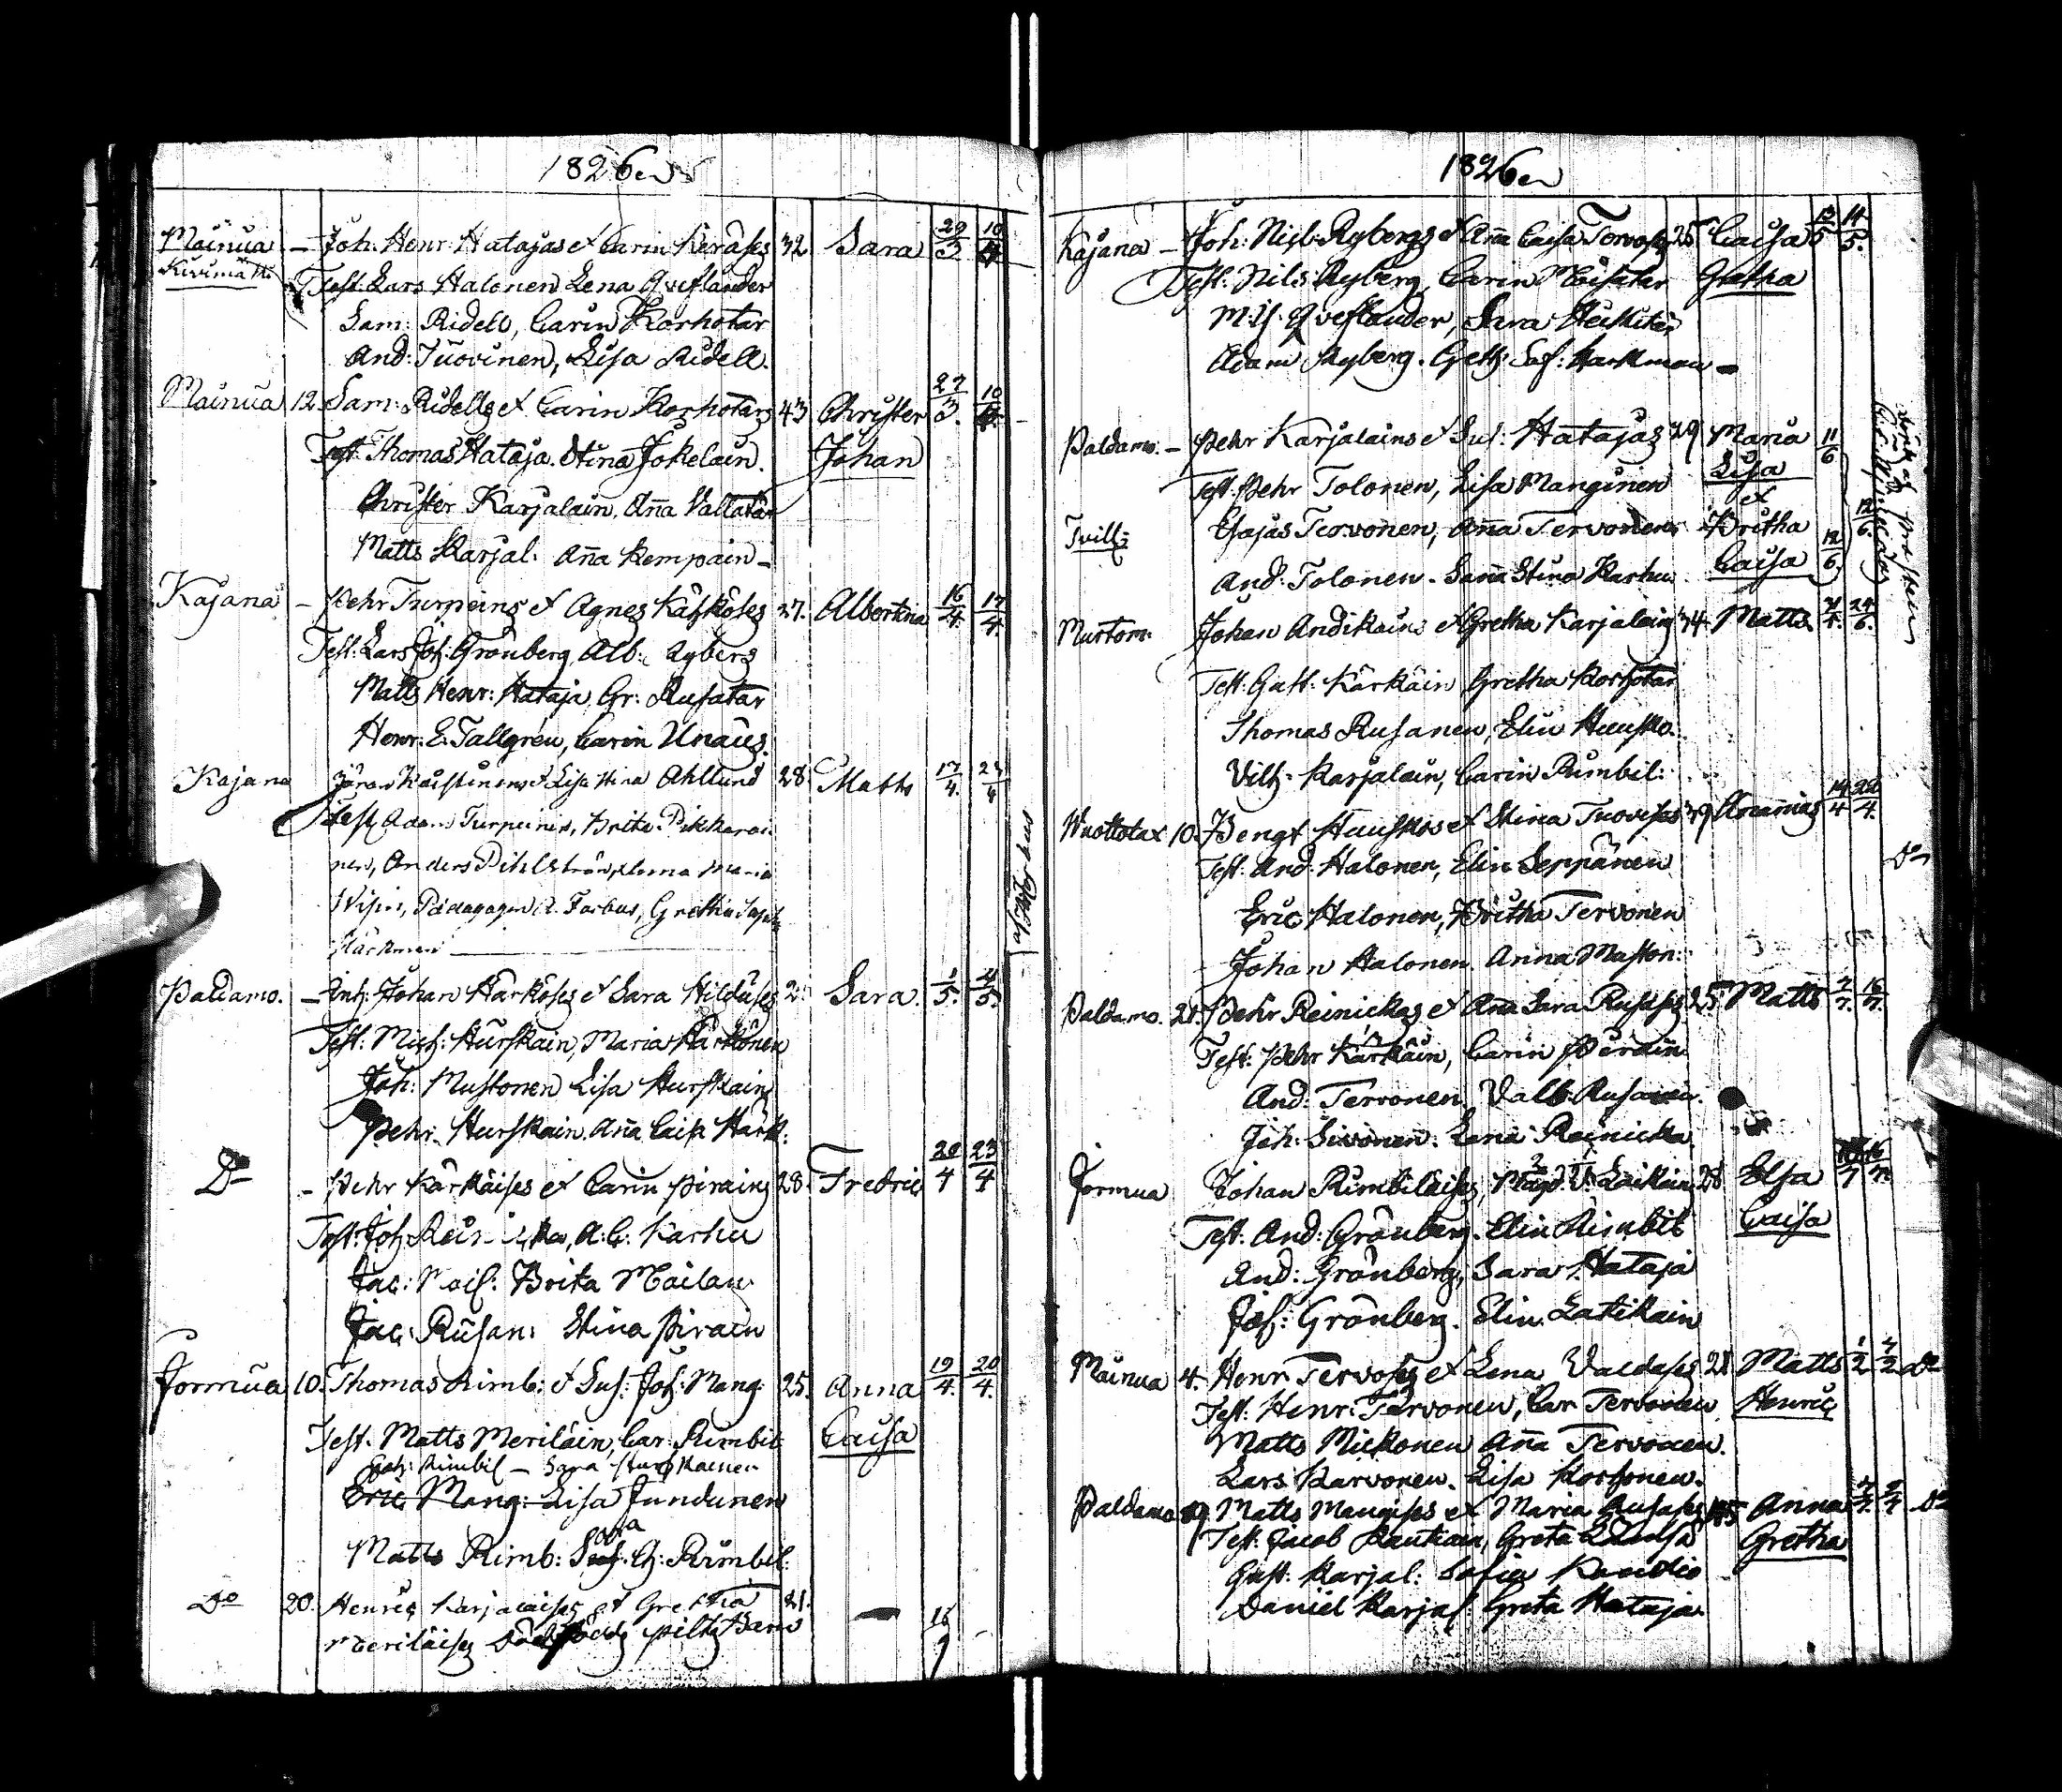 1826
Mainua — Joh: Henr: Hatajas et Carin Keräses 32 Sara 29/3 10/4
Kivimäki Test: Lars Halonen Lena Qveflander
Sam: Ridell, Carin Korhotar
And: Tuovinen, Lisa Ridell.
Mainua 12. Sam: Ridells et Carin Korhotars 43 Christer 27/3. 10/4.
Test: Thomas Hataja. Stina Jokelain. Johan
Christer Karjalain, Aña Valtatar
Matts Karjal: Aña Kempain —
Kajana — Pehr Turpeins et Agnes Käfköses 27. Albertina 16/4. 17/4.
Test: Lars Joh: Grönberg, Alb: Ryberg
Matts Henr: Hataja, Gr: Rusatar
Henr: E. Tallgren, Carin Unäus.
Kajana Lisa Stina Ahllund 28. Matts 17/4. 24/4
Test Adam Turpeinen, Brita Pikkarai
nen, Anders Pihlström,
Wipin, Pädagogen A. Forbus, Gretha
Härkman
af Forbus
Paldamo. — Inh: Johan Härköses et Sara Hilduses Sara. 1/5. 4/5.
Test: Mich: Hurskain, Maria Härkönen
Joh: Mustonen Lisa Hurskain
Pehr Hurskain. Aña Caisa Härk:
Do — Pehr Kärkäises et Carin Pirains 28. Fredric 20/4 23/4
Test: Joh: A: C: Karhu
Jac: Brita Moilan
Jac: Rusan: Stina Pirain
Jormua 10. Thomas Rimb: et Sus: Joh: Mang: 25. Anna 19/4. 20/4.
Test. Matts Meriläin, Car: Rimbil Caisa
Joh: Rimbil — Sara Hurskainen
Eric Mang: Lisa Jundunen
Matts Rimb: Sara Ch: Rimbil:
Do 20. Henric Karjalaises et Gretha 21. — 16
Meriläises Dödfödt piltebarn
1826
Kajana — Joh: Nils: Rybergs et Aña Caisa Tervoses 25 Caisa 13/5 14/5.
Test: Nils Ryberg, Carin Gretha
Mich. Qveflander, Sara
Adam Ryberg. Greth: Sof: Harkman —
Paldamo. — Pehr Karjalains et Sus: Hatajas 29 Maria 11/6
Test: Pehr Tolonen, Lisa Manginen Lisa
et
Tvill: Esajas Tervonen, Aña Tervonen Britha 12/6 12/6.
And: Tolonen — Saña Stina Karhu Caisa
Murtom: Johan Andikains et Gretha Karjalains 34. Matts. 24/6.
Test: Gust: Kärkäin Gretha Korhotar
Thomas Rusanen, Elin Hausko.
Vilh: Karjalain, Carin Rimbil:
Wuottolax 10. Bengt Hauskos et Stina Tuovises 39 14/4 22/4.
Test: And: Halonen, Elin Seppänen Do
Eric Halonen, Britha Tervonen
Johan Halonen. Anna Muston:
Paldamo. 21. Pehr Reinickas et Aña Sara Rusases 25. Matts 7/7. 16/7.
Test: Pehr Kärkäin, Carin Piräin
And: Tervonen, Valb: Rusanen.
Joh: Sivonen: Lena Reinicka
Jormua Johan Rimbiläises, Magd: Laikains 28 Elsa 16/7.
Test: And: Grönberg. Elin Rimbil Caisa
And: Grönberg, Sara Hataja
Joh: Grönberg. Elin Latikain
Mainua 4. Henr: Tervoses et Lena Valdases 28 Matts 1/2 4/2 Do
Test: Henr: Tervonen, Car: Tervonen Henric
Matts Mickonen Aña Tervonen.
Lars Karvonen. Lisa Korhonen.
Paldamo Matts Mangises et Maria Rusases Anna Do
Test: Jacob Rautiain, Greta Gretha
Gust: Karjal: Sofia
Daniel Karjal: Greta Hataja